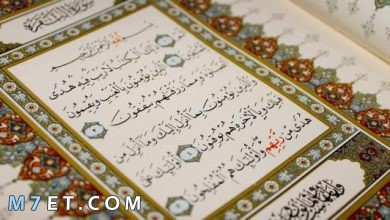 بِسْمِ اللَّهِ الرَّحْمَٰنِ الرَّحِيمِ
الم ذَٰلِكَ الْكِتَابُ لَا رَيْبَ فِيهِ هُدًى
لِلْمُتَّقِينَ الَّذِينَ يُؤْمِنُونَ بِالْغَيْبِ وَيُقِيمُونَ
الصَّلَاةَ وَمِمَّا رَزَقْنَاهُمْ يُنْفِقُونَ
وَالَّذِينَ يُؤْمِنُونَ بِمَا أُنْزِلَ إِلَيْكَ وَمَا أُنْزِلَ مِنْ
قَبْلِكَ وَبِالْآخِرَةِ هُمْ يُوقِنُونَ أُولَٰئِكَ عَلَىٰ
هُدًى مِنْ رَبِّهِمْ وَأُولَٰئِكَ هُمُ الْمُفْلِحُونَ
M7ET.COM